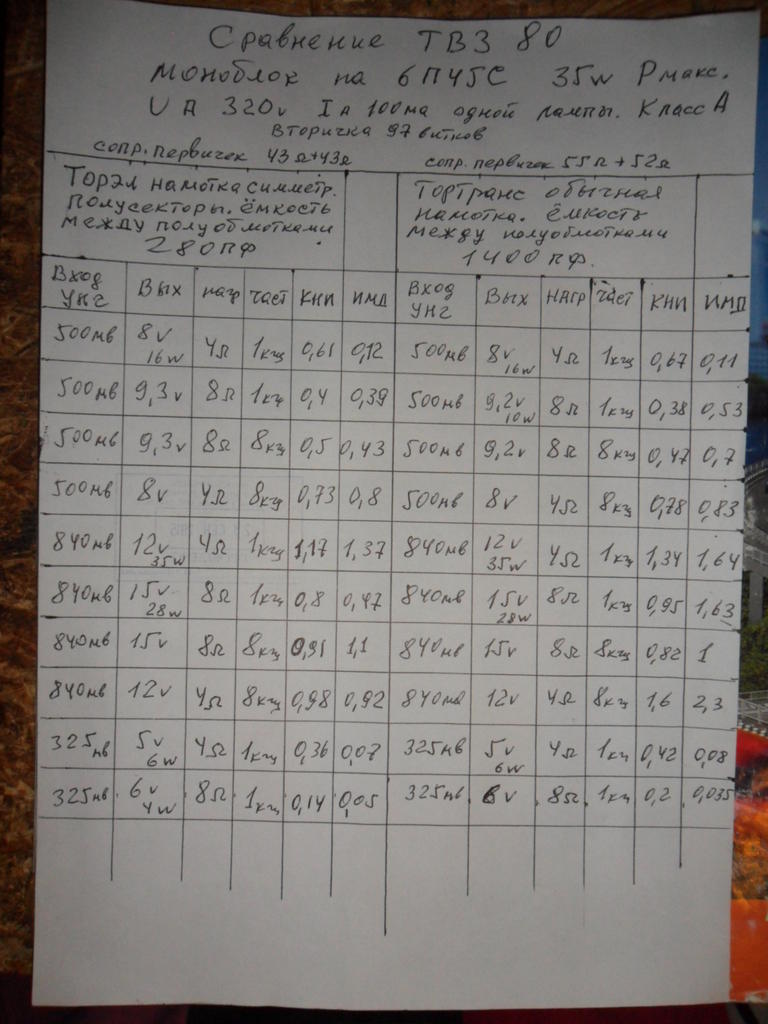 Сравнение ТВЗ 80
моноблок на 6П45С 35w Pмакс.
UА 320v IА 100ма одной лампы. Класс А
Вторичка 97 витков
сопр. первичек 43Ω+43Ω сопр. первичек 55Ω+52Ω
Торэл намотка симметр. Тортранс обычная
полусекторы. ёмкость намотка. ёмкость
между полуобмотками между полуобмотками
280пф 1400пф.
Вход УНЧ Вых нагр част КНИ ИМД Вход УНЧ Вых НАГР част КНИ ИМД
500мв 8v 16w 4Ω 1кгц 0,61 0,12 500мв 8v 16w 4Ω 1кгц 0,67 0,11
500мв 9,3v 8Ω 1кгц 0,4 0,39 500мв 9,2v 10w 8Ω 1кгц 0,38 0,53
500мв 9,3v 8Ω 8кгц 0,5 0,43 500мв 9,2v 8Ω 8кгц 0,47 0,7
500мв 8v 4Ω 8кгц 0,73 0,8 500мв 8v 4Ω 8кгц 0,78 0,83
840мв 12v 35w 4Ω 1кгц 1,17 1,37 840мв 12v 35w 4Ω 1кгц 1,34 1,64
840мв 15v 28w 8Ω 1кгц 0,8 0,47 840мв 15v 28w 8Ω 1кгц 0,95 1,63
840мв 15v 8Ω 8кгц 0,91 1,1 840мв 15v 8Ω 8кгц 0,82 1
840мв 12v 4Ω 8кгц 0,98 0,92 840мв 12v 4Ω 8кгц 1,6 2,3
325мв 5v 6w 4Ω 1кгц 0,36 0,07 325мв 5v 6w 4Ω 1кц 0,42 0,08
325мв 6v 4w 8Ω 1кгц 0,14 0,05 325мв 6v 8Ω 1кц 0,2 0,035